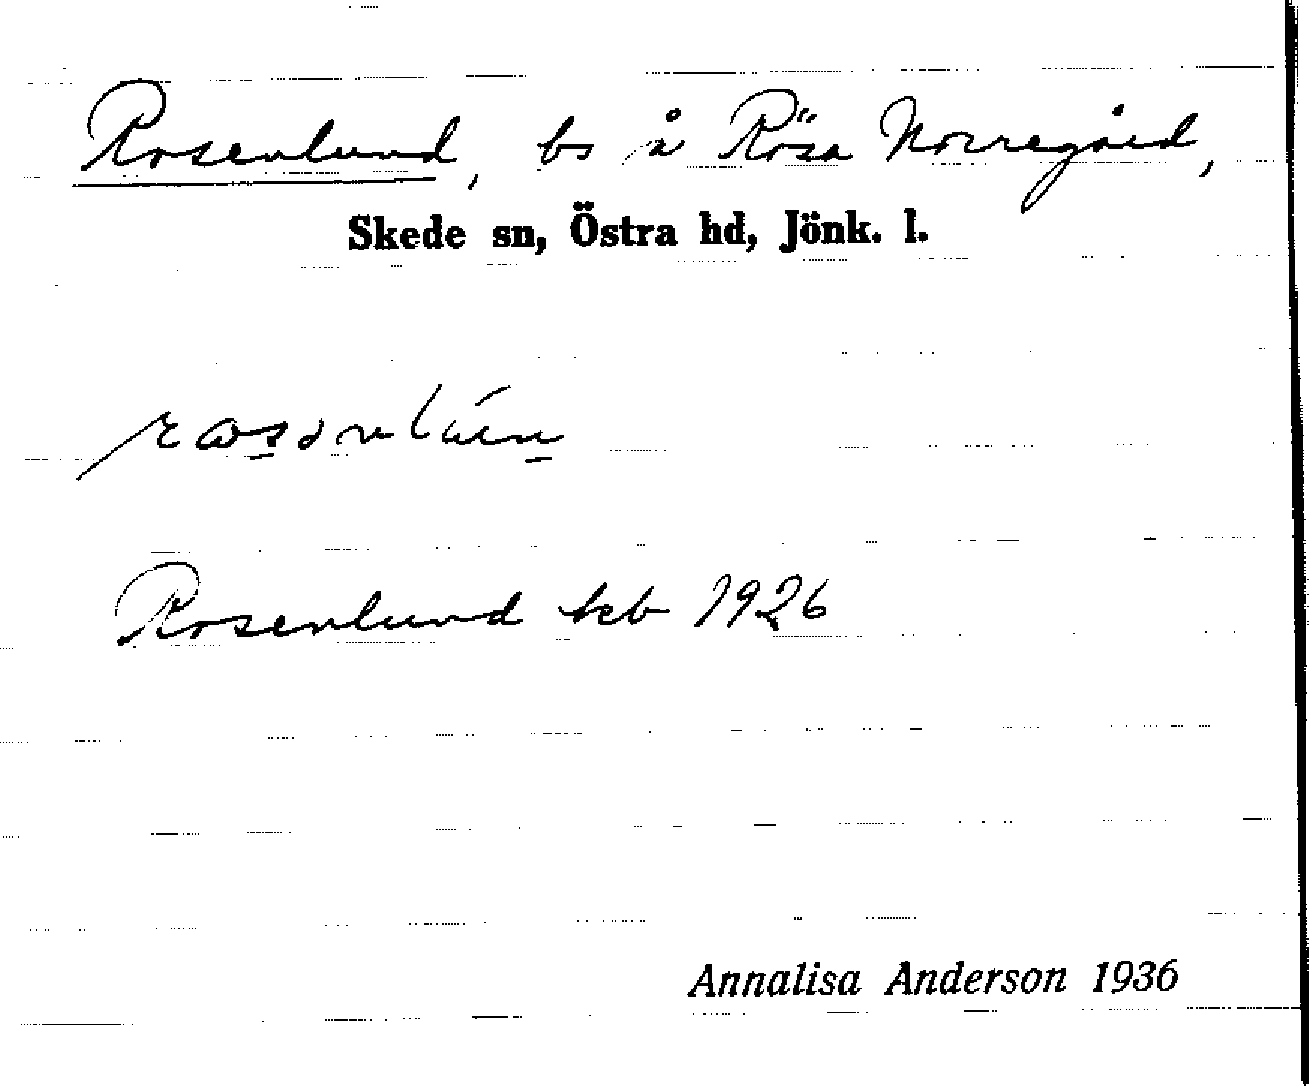 Rosenlund, bs å Rösa Norregård,
Skede sn, Östra hd, Jönk. l.
Rosenlund ekb 1926
Annalisa Anderson 1936